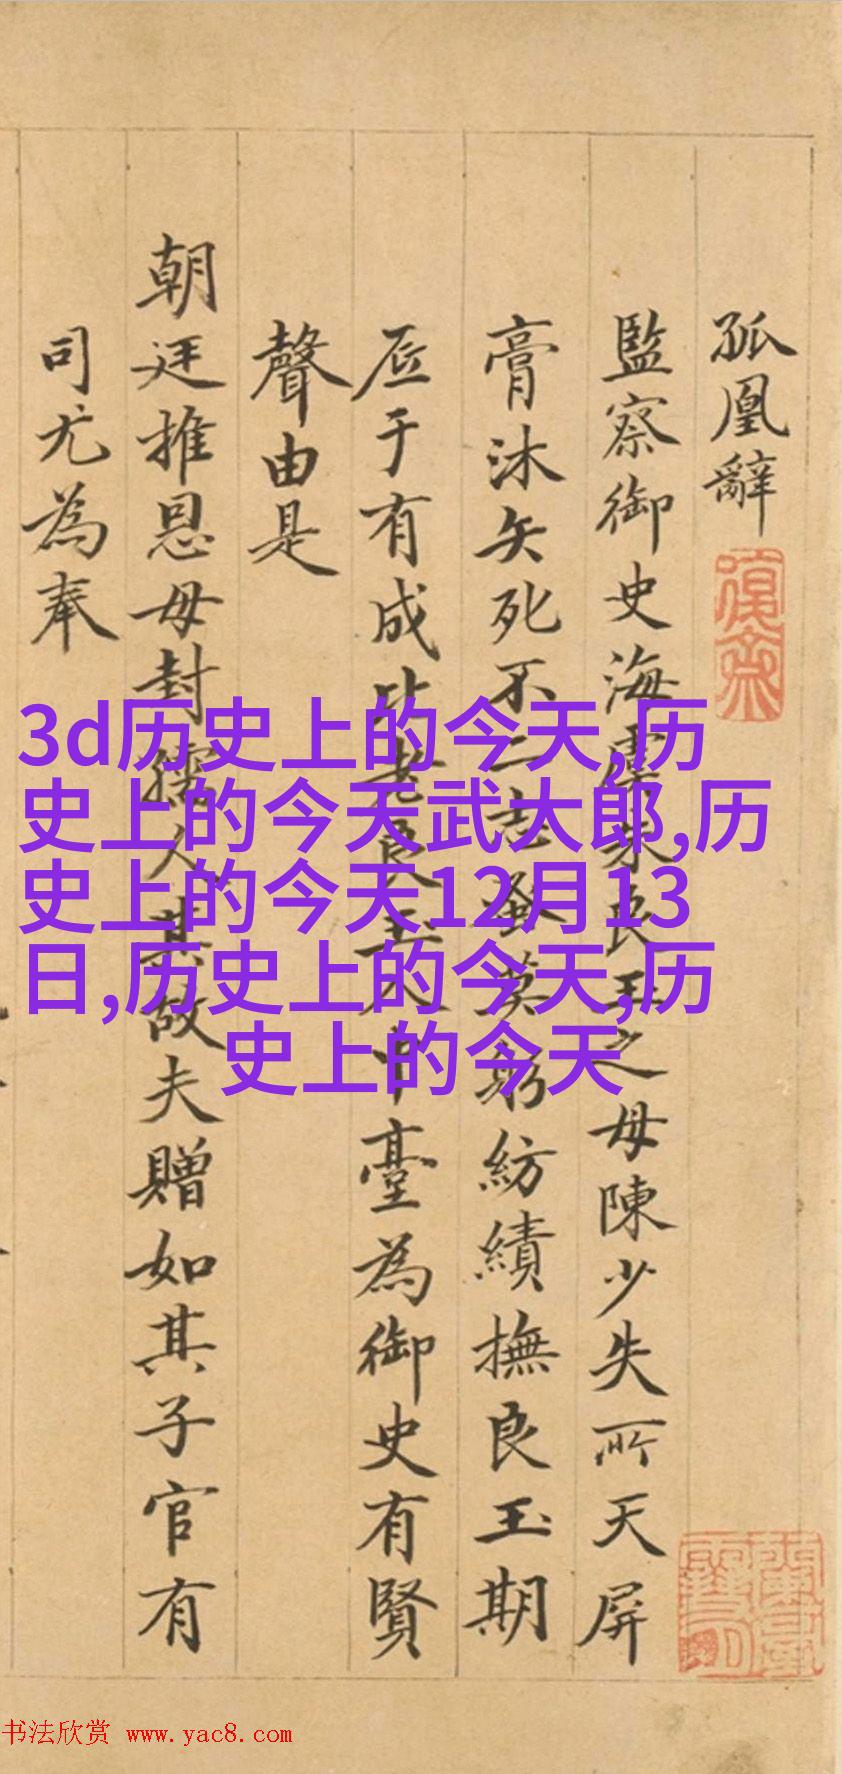 孤凰辭
監察御史海虞朱良玉之母陳少失所天屏
膏沐矢死不二志蚤莫躬紡績撫良玉期
底于有成比老良玉入中臺為御史有賢
聲由是
朝廷推恩母封孺人其故夫贈如其子官有
司尤為奉
3d历史上的今天,历
史上的今天武大郎,历
史上的今天12月13
日,历史上的今天,历
史上的今天
书法欣赏 www.yac8.com